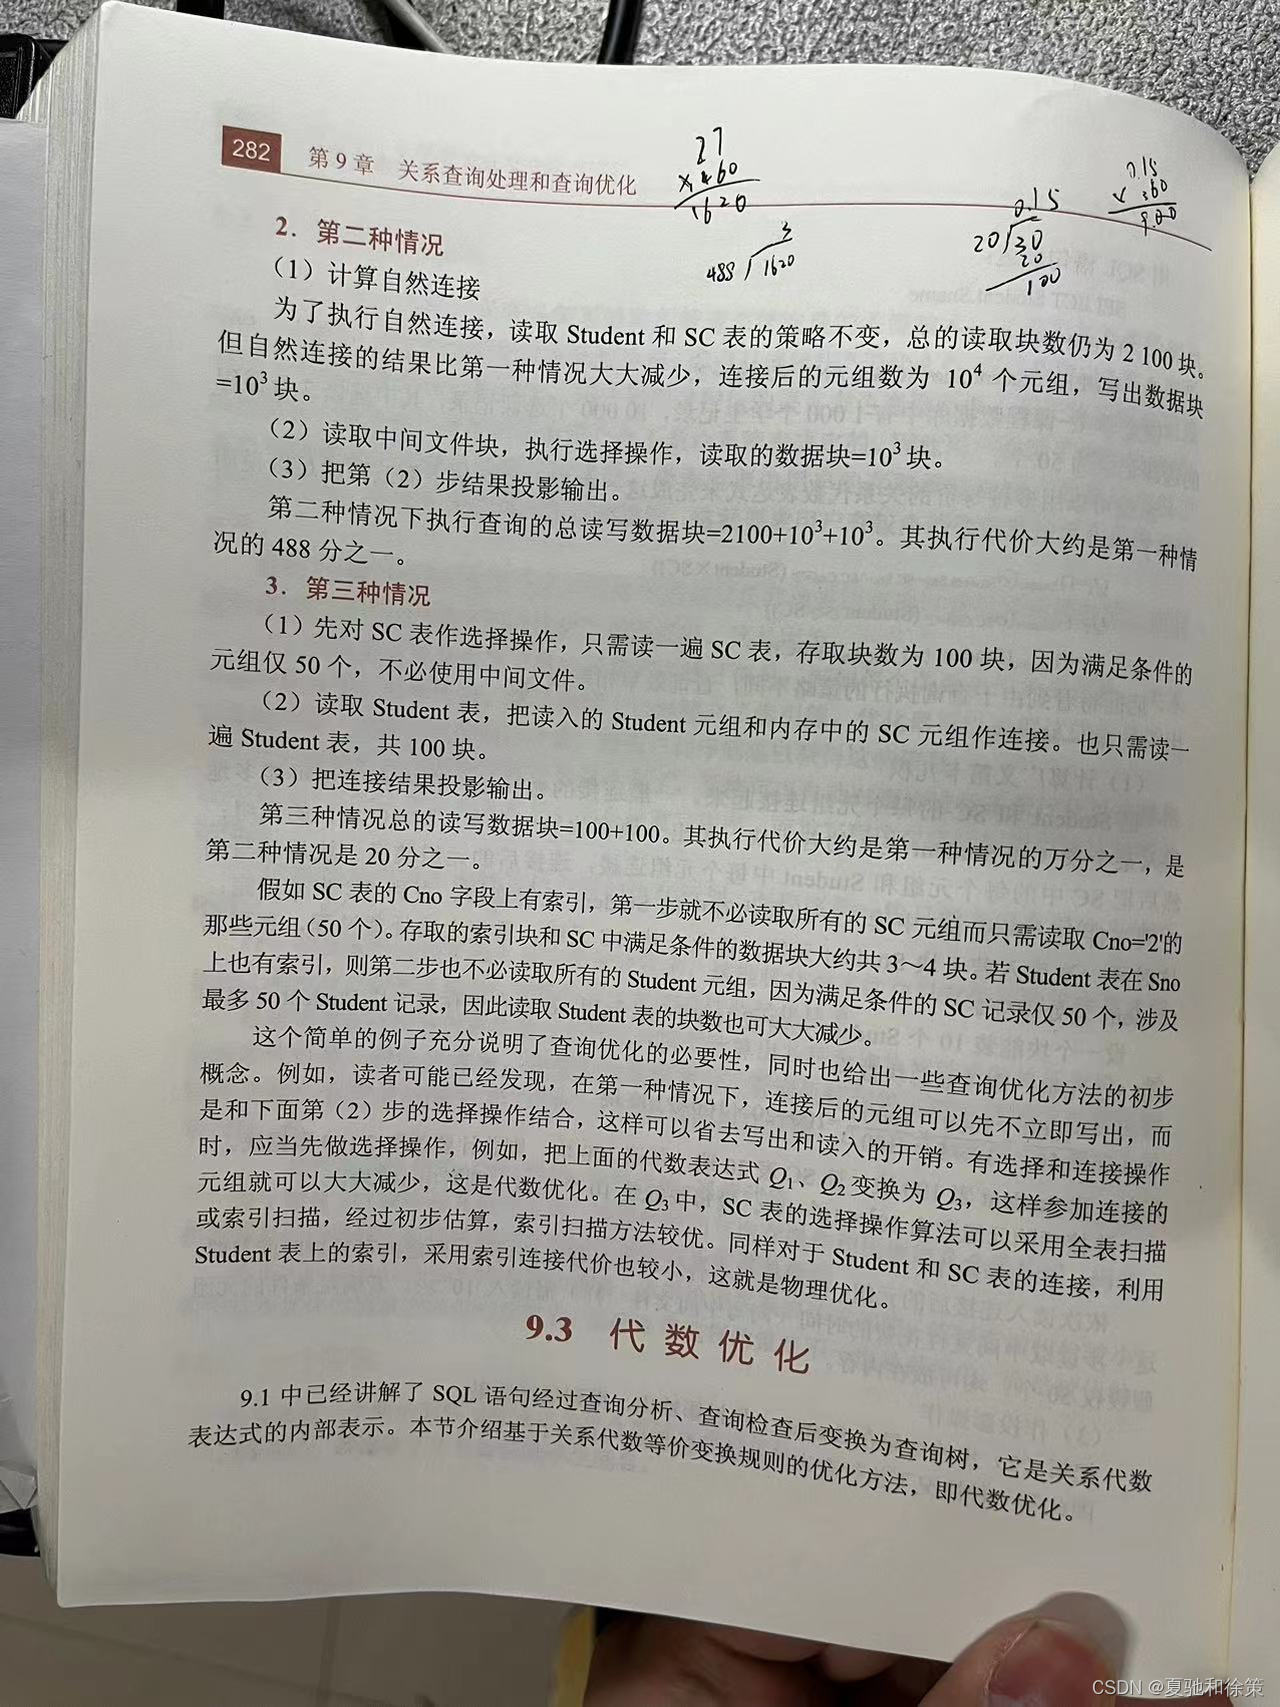 282 第9章 关系查询处理和查询优化
27
×460
1620
3
488/1620
0.15
20/30
20
100
0.15
× 360
9.00
2. 第二种情况
（1）计算自然连接
为了执行自然连接，读取 Student 和 SC 表的策略不变，总的读取块数仍为 2 100 块。
但自然连接的结果比第一种情况大大减少，连接后的元组数为 10⁴ 个元组，写出数据块
=10³ 块。
（2）读取中间文件块，执行选择操作，读取的数据块=10³ 块。
（3）把第（2）步结果投影输出。
第二种情况下执行查询的总读写数据块=2100+10³+10³。其执行代价大约是第一种情
况的 488 分之一。
3. 第三种情况
（1）先对 SC 表作选择操作，只需读一遍 SC 表，存取块数为 100 块，因为满足条件的
元组仅 50 个，不必使用中间文件。
（2）读取 Student 表，把读入的 Student 元组和内存中的 SC 元组作连接。也只需读一
遍 Student 表，共 100 块。
（3）把连接结果投影输出。
第三种情况总的读写数据块=100+100。其执行代价大约是第一种情况的万分之一，是
第二种情况是 20 分之一。
假如 SC 表的 Cno 字段上有索引，第一步就不必读取所有的 SC 元组而只需读取 Cno='2'的
那些元组（50 个）。存取的索引块和 SC 中满足条件的数据块大约共 3～4 块。若 Student 表在 Sno
上也有索引，则第二步也不必读取所有的 Student 元组，因为满足条件的 SC 记录仅 50 个，涉及
最多 50 个 Student 记录，因此读取 Student 表的块数也可大大减少。
这个简单的例子充分说明了查询优化的必要性，同时也给出一些查询优化方法的初步
概念。例如，读者可能已经发现，在第一种情况下，连接后的元组可以先不立即写出，而
是和下面第（2）步的选择操作结合，这样可以省去写出和读入的开销。有选择和连接操作
时，应当先做选择操作，例如，把上面的代数表达式 Q₁、Q₂ 变换为 Q₃，这样参加连接的
元组就可以大大减少，这是代数优化。在 Q₃ 中，SC 表的选择操作算法可以采用全表扫描
或索引扫描，经过初步估算，索引扫描方法较优。同样对于 Student 和 SC 表的连接，利用
Student 表上的索引，采用索引连接代价也较小，这就是物理优化。
9.3 代数优化
9.1 中已经讲解了 SQL 语句经过查询分析、查询检查后变换为查询树，它是关系代数
表达式的内部表示。本节介绍基于关系代数等价变换规则的优化方法，即代数优化。
CSDN @夏驰和徐策